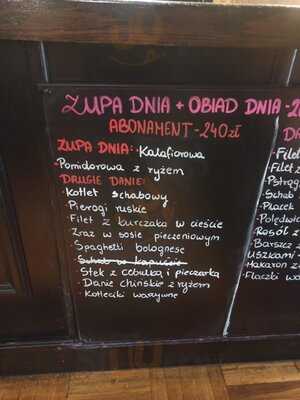 ZUPA DNIA + OBIAD DNIA - 2
ABONAMENT - 240 zł
ZUPA DNIA: · Kalafiorowa
· Pomidorowa z ryżem
DRUGIE DANIE:
· Kotlet schabowy
· Pierogi ruskie
· Filet z kurczaka w cieście
· Zraz w sosie pieczeniowym
· Spaghetti bolognese
· Schab w kapuście
· Stek z cebulką i pieczarką
· Danie chińskie z ryżem
· Kotleciki warzywne
DA
· Filet
· Filet z
· Pstrąg
· Schab
· Placek
· Polędwi
· Rosół z
· Barszcz
· Uszkami
· Makaron z
· Flaczki wo